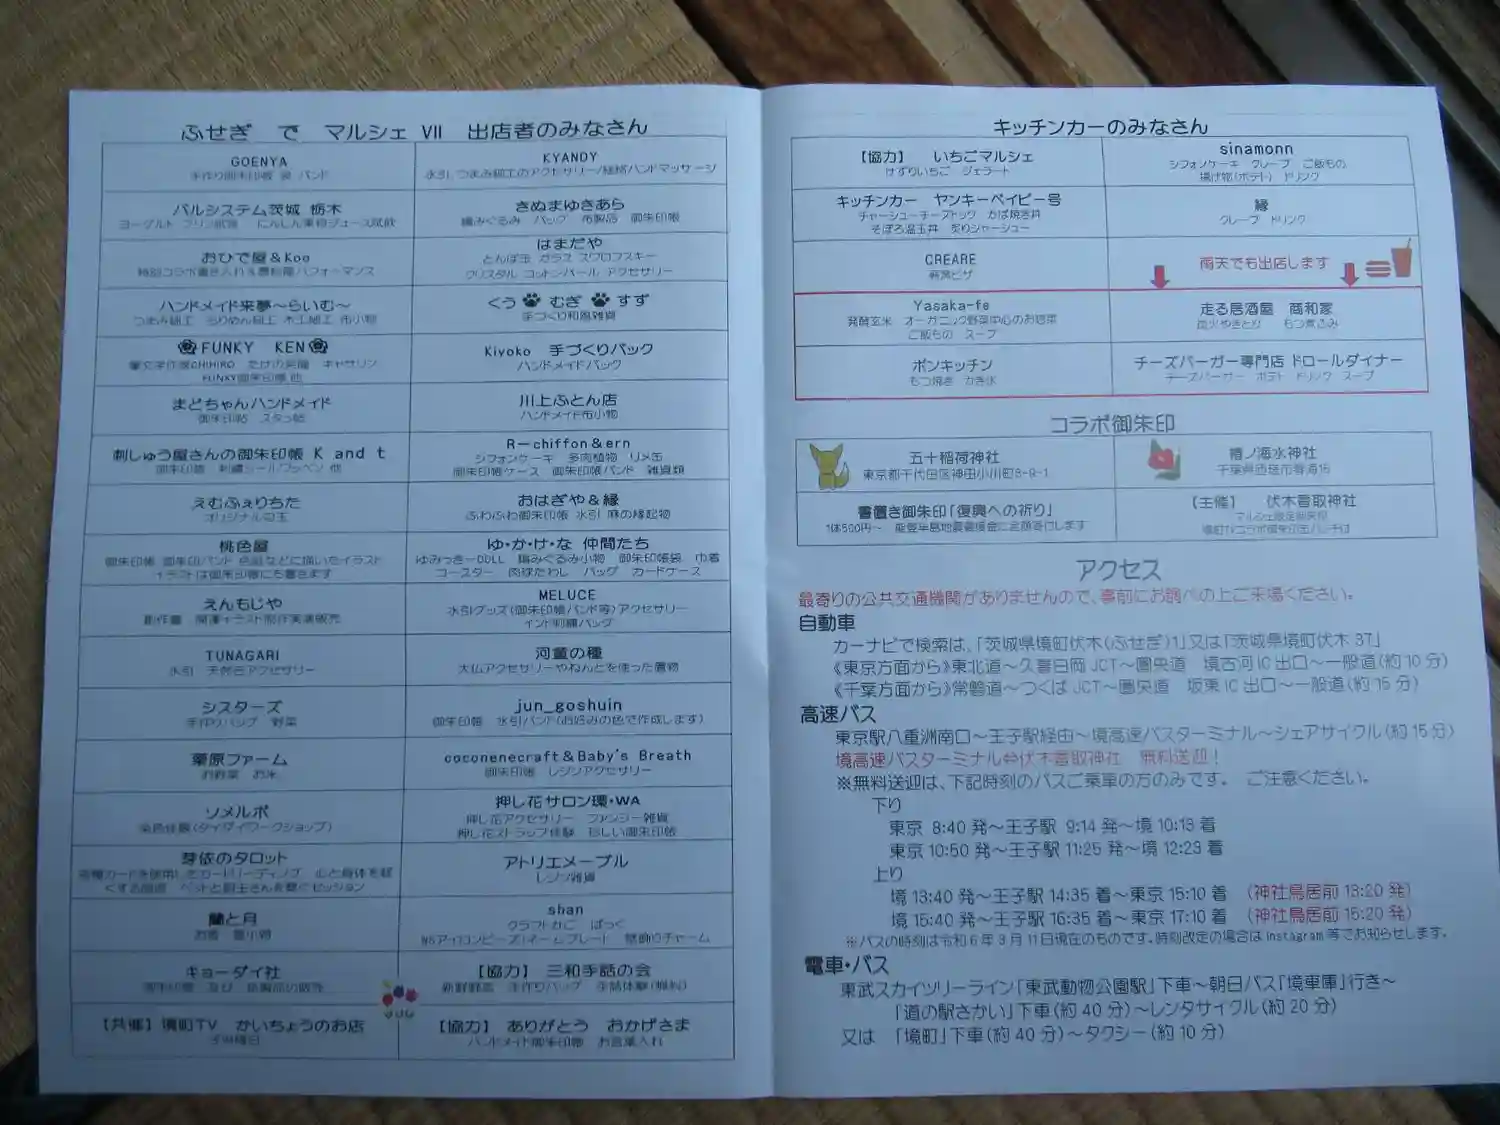 ふせぎ で マルシェ Ⅶ 出店者のみなさん
GOENYA
手作り御朱印帳 袋 バンド
KYANDY
水引 つまみ細工のアクセサリー/経絡ハンドマッサージ
パルシステム茨城 栃木
ヨーグルト プリン試食 にんじん果樹ジュース試飲
きぬまゆきあら
編みぐるみ バッグ 布製品 御朱印帳
おひで屋&Koo
はまだや
とんぼ玉 ガラス スワロフスキー
クリスタル コットンパール アクセサリー
ハンドメイド来夢～らいむ～
つまみ細工 ちりめん細工 木工細工 布小物
くう むぎ すず
手づくり和風雑貨
FUNKY KEN
FUNKY御朱印帳 他
Kiyoko 手づくりバック
ハンドメイドバック
まどちゃんハンドメイド
御朱印帖 スタンプ帖
川上ふとん店
ハンドメイド布小物
刺しゅう屋さんの御朱印帳 K and t
御朱印帳 刺繍シールワッペン 他
R－chiffon&ern
シフォンケーキ 多肉植物 リメ缶
御朱印帳ケース 御朱印帳バンド 雑貨類
えむふぇりちた
オリジナル勾玉
おはぎや&縁
ふわふわ御朱印帳 水引 麻の縁起物
桃色屋
御朱印帳 御朱印バンド 色紙などに描いたイラスト
イラストは御朱印帳にも書きます
ゆ・か・け・な 仲間たち
ゆみっきーDOLL 編みぐるみ小物 御朱印帳袋 巾着
コースター 肉球たわし バッグ カードケース
えんもじや
創作書 開運イラスト制作実演販売
MELUCE
水引グッズ(御朱印帳バンド等)アクセサリー
インド刺繍バッグ
TUNAGARI
水引 天然石アクセサリー
河童の種
大仏アクセサリーやねんどを使った置物
シスターズ
手作りバッグ 野菜
jun_goshuin
御朱印帳 水引バンド(お好みの色で作成します)
栗原ファーム
お野菜 お米
coconenecraft&Baby's Breath
御朱印帳 レジンアクセサリー
ソメルボ
染色体験(タイダイワークショップ)
押し花サロン環・WA
押し花アクセサリー ファンシー雑貨
押し花ストラップ体験 珍しい御朱印帳
芽依のタロット
各種カードを使用したカードリーディング 心と身体を軽
くする施術 ペットと飼主さんを繋ぐセッション
アトリエメープル
レジン雑貨
蘭と月
shan
クラフトかご ばっぐ
キョーダイ社
【協力】 三和手話の会
新鮮野菜 手作りバッグ 手話体験(無料)
【共催】境町TV かいちょうのお店
【協力】 ありがとう おかげさま
ハンドメイド御朱印帳 お言葉入れ
キッチンカーのみなさん
【協力】 いちごマルシェ
けずりいちご ジェラート
sinamonn
シフォンケーキ クレープ ご飯もの
揚げ物(ポテト) ドリンク
キッチンカー ヤンキーベイビー号
チャーシューチーズドッグ かば焼き丼
そぼろ温玉丼 炙りチャーシュー
縁
クレープ ドリンク
CREARE
窯焼ピザ
雨天でも出店します
Yasaka-fe
発酵玄米 オーガニック野菜中心のお惣菜
ご飯もの スープ
走る居酒屋 商和家
炭火やきとり もつ煮込み
ポンキッチン
もつ焼き かき氷
チーズバーガー専門店 ドロールダイナー
チーズバーガー ポテト ドリンク スープ
コラボ御朱印
五十稲荷神社
東京都千代田区神田小川町3-9-1
椿ノ海水神社
千葉県匝瑳市春海15
書置き御朱印「復興への祈り」
1体500円～ 能登半島地震義援金に全額寄付します
【主催】 伏木香取神社
マルシェ限定御朱印
アクセス
最寄りの公共交通機関がありませんので、事前にお調べの上ご来場ください。
自動車
カーナビで検索は、「茨城県境町伏木(ふせぎ)1」又は「茨城県境町伏木 37」
《東京方面から》東北道～久喜白岡 JCT～圏央道 境古河 IC 出口～一般道(約 10 分)
《千葉方面から》常磐道～つくば JCT～圏央道 坂東 IC 出口～一般道(約 15 分)
高速バス
東京駅八重洲南口～王子駅経由～境高速バスターミナル～シェアサイクル(約 15 分)
境高速バスターミナル⇔伏木香取神社 無料送迎！
※無料送迎は、下記時刻のバスご乗車の方のみです。 ご注意ください。
下り
東京 8:40 発～王子駅 9:14 発～境 10:13 着
東京 10:50 発～王子駅 11:25 発～境 12:23 着
上り
境 13:40 発～王子駅 14:35 着～東京 15:10 着 (神社鳥居前 13:20 発)
境 15:40 発～王子駅 16:35 着～東京 17:10 着 (神社鳥居前 15:20 発)
※バスの時刻は令和 6 年 3 月 11 日現在のものです。時刻改定の場合は Instagram 等でお知らせします。
電車・バス
東武スカイツリーライン「東武動物公園駅」下車～朝日バス「境車庫」行き～
「道の駅さかい」下車(約 40 分)～レンタサイクル(約 20 分)
又は 「境町」下車(約 40 分)～タクシー(約 10 分)